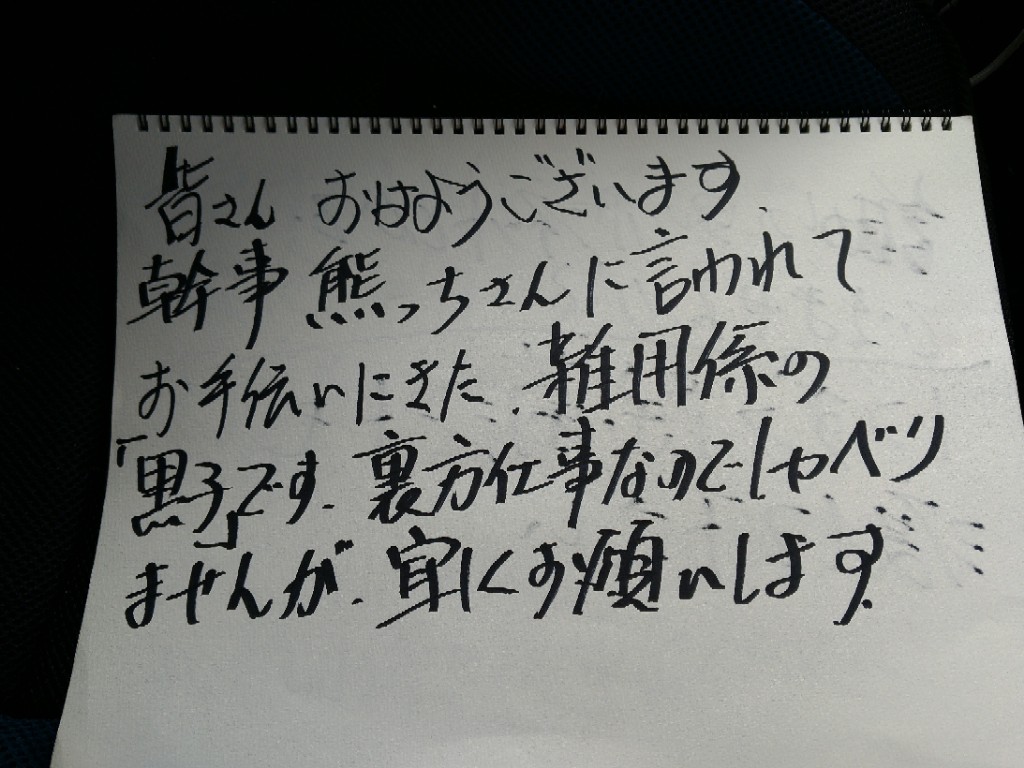 皆さん おはようございます.
幹事 熊っちさんに言われて
お手伝いにきた.雑用係の
「黒子」です.裏方仕事なのでしゃべり
ませんが.宜しくお願いします.